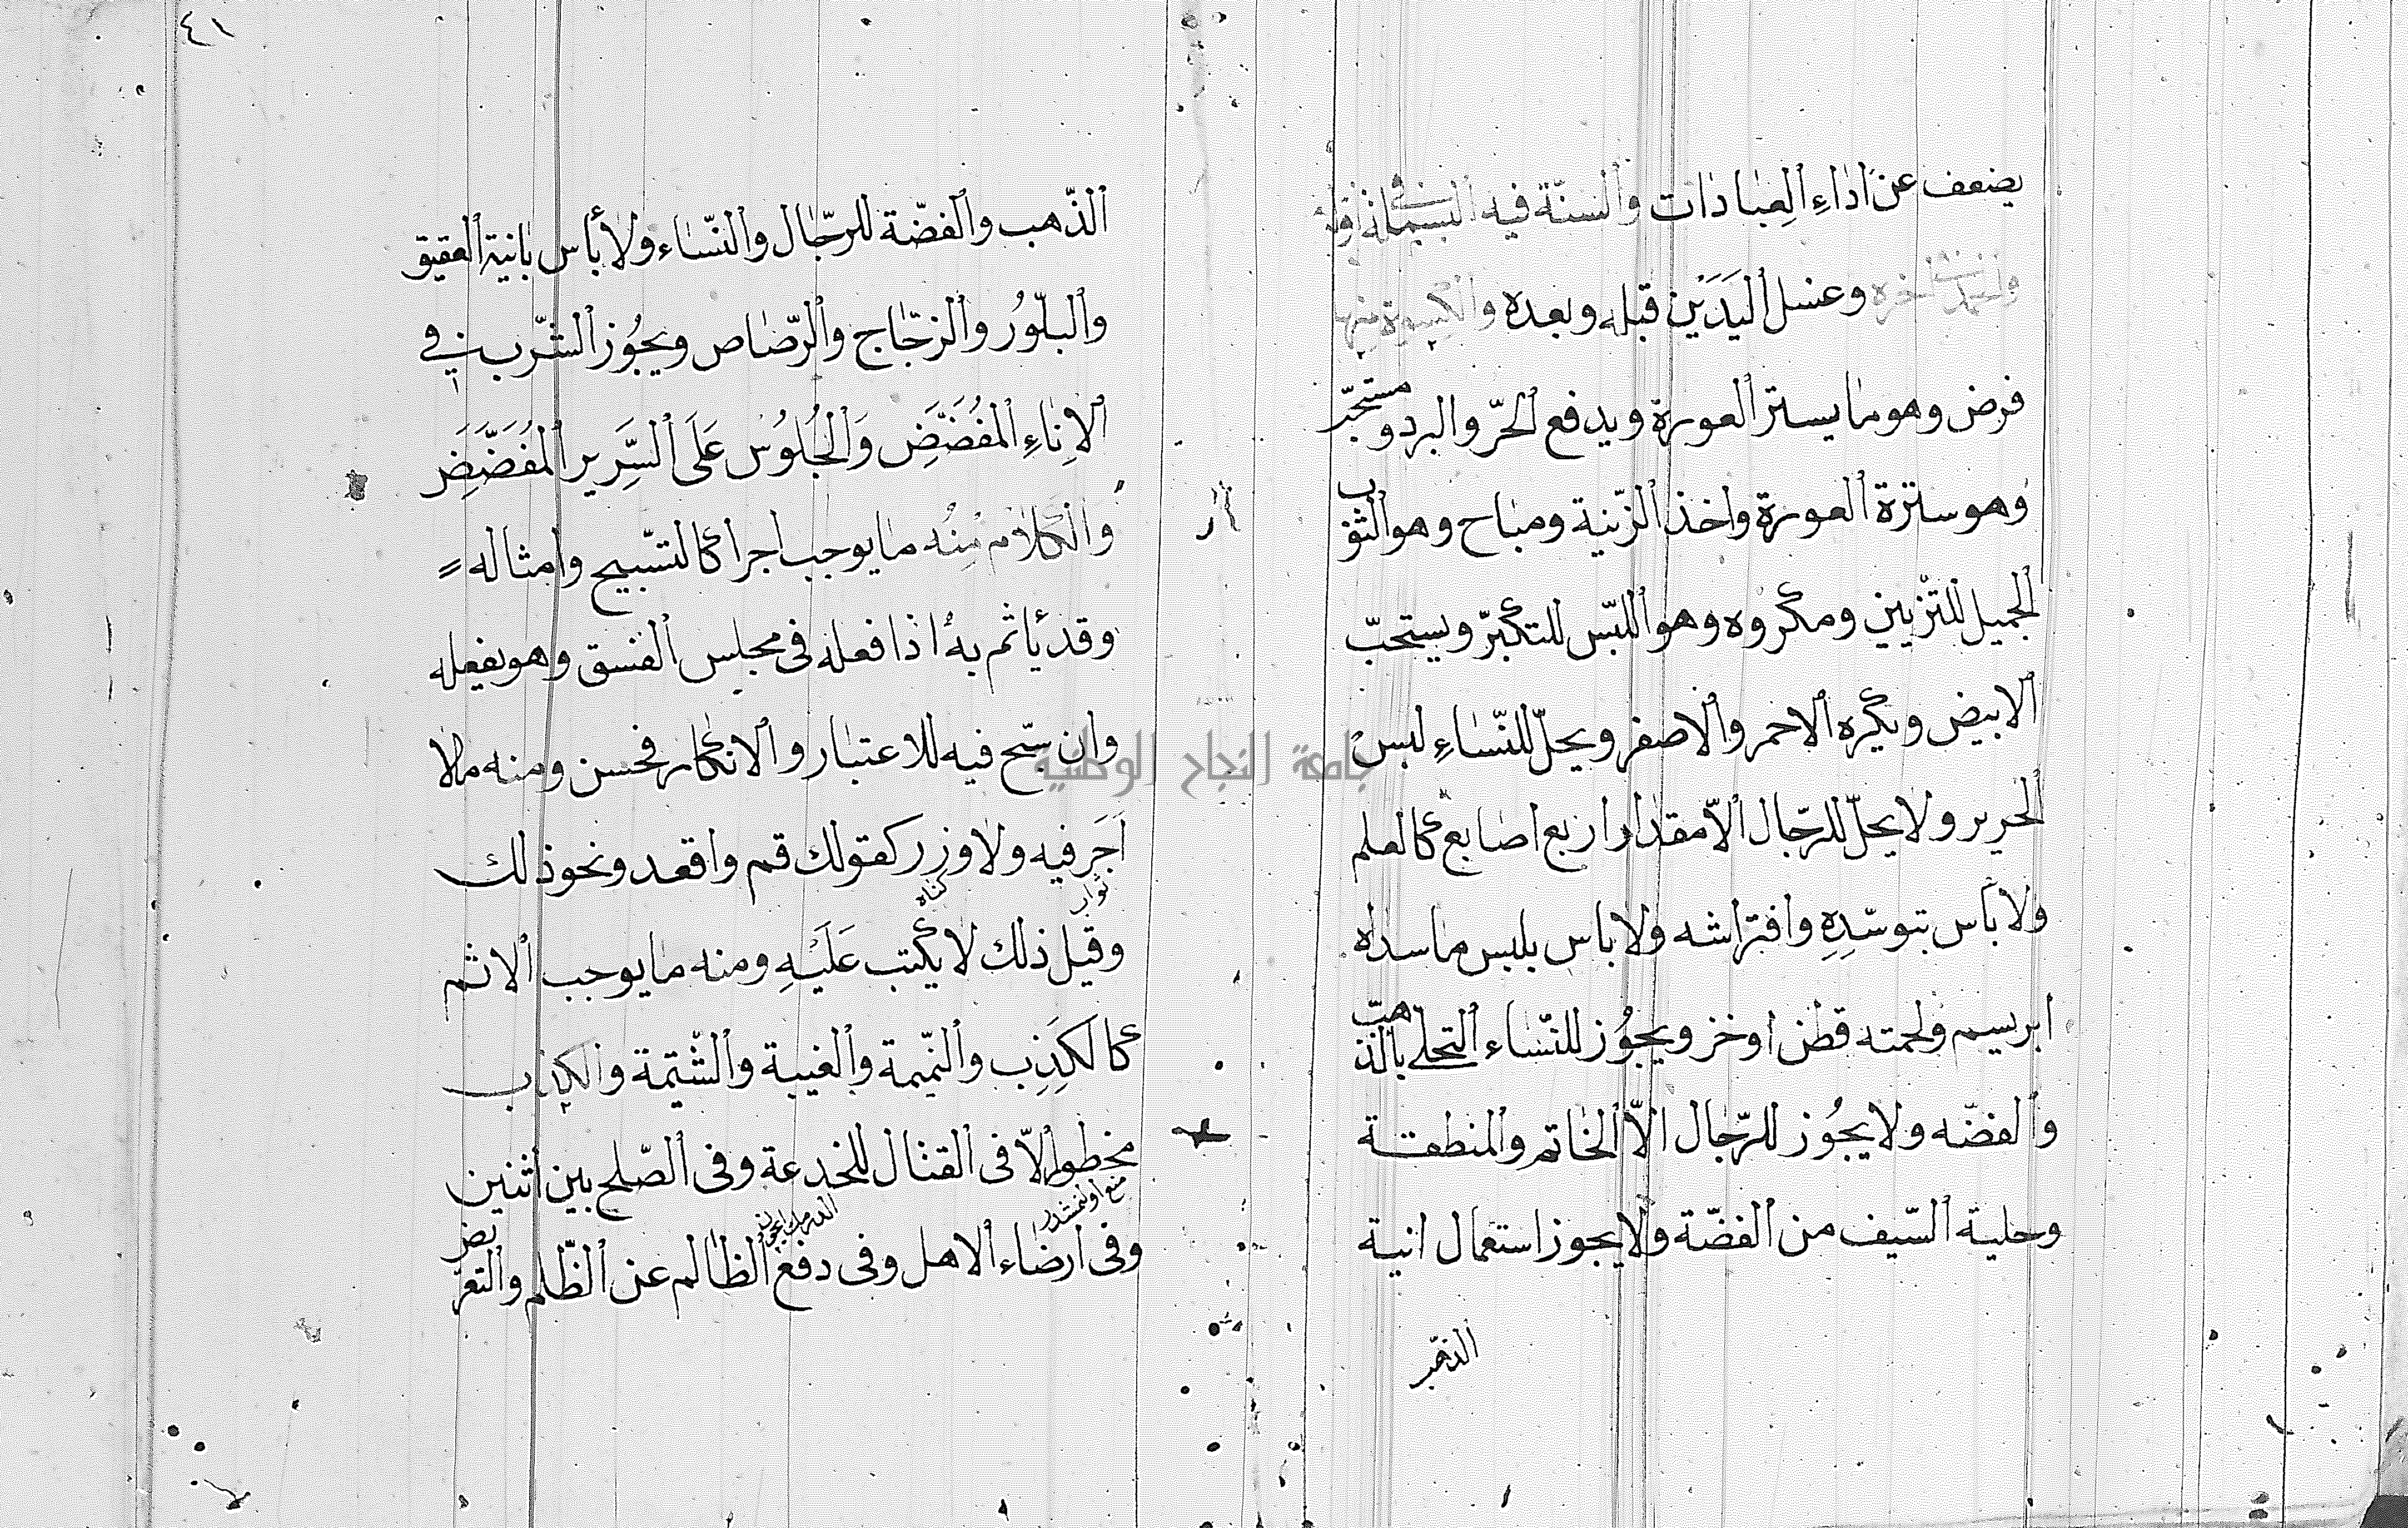 يضعف عن اداء العبادات والسنة فيه البسملة في اوله
والحمد في اخره وغسل اليدين قبله وبعده والكسوة منها
فرض وهو ما يستر العورة ويدفع الحر والبرد ومستحب
وهو سترة العورة واخذ الزينة ومباح وهو الثوب
الجميل للتزيين ومكروه وهو اللبس للتكبر ويستحب
الابيض ويكره الاحمر والاصفر ويحل للنساء لبس
الحرير ولا يحل للرجال الا مقدار اربع اصابع كالعلم
ولا بأس بتوسده وافتراشه ولا باس بلبس ما سداه
ابريسم ولحمته قطن او خز ويجوز للنساء التحلي بالذهب
والفضه ولا يجوز للرجال الا الخاتم والمنطقة
وحلية السيف من الفضة ولا يجوز استعمال انية
الذهب
٤١
الذهب والفضة للرجال والنساء ولا بأس بانية العقيق
والبلور والزجاج والرصاص ويجوز الشرب في
الاناء المفضض والجلوس على السرير المفضض
والكلام منه ما يوجب اجرا كالتسبيح وامثاله
وقد يأثم به اذا فعله في مجلس الفسق وهو يفعله
وان سبح فيه للاعتبار والانكار فحسن ومنه ما لا
اجر فيه ولا وزر كقولك قم واقعد ونحو ذلك
ثواب كناه
وقيل ذلك لا يكتب عليه ومنه ما يوجب الاثم
كالكذب والنميمة والغيبة والشتيمة والكذب
محظور الا في القتال للخدعة وفي الصلح بين اثنين
منع اولنمشدر
وفي ارضاء الاهل وفي دفع الظالم عن الظلم والتعريض
جامعة النجاح الوطنية